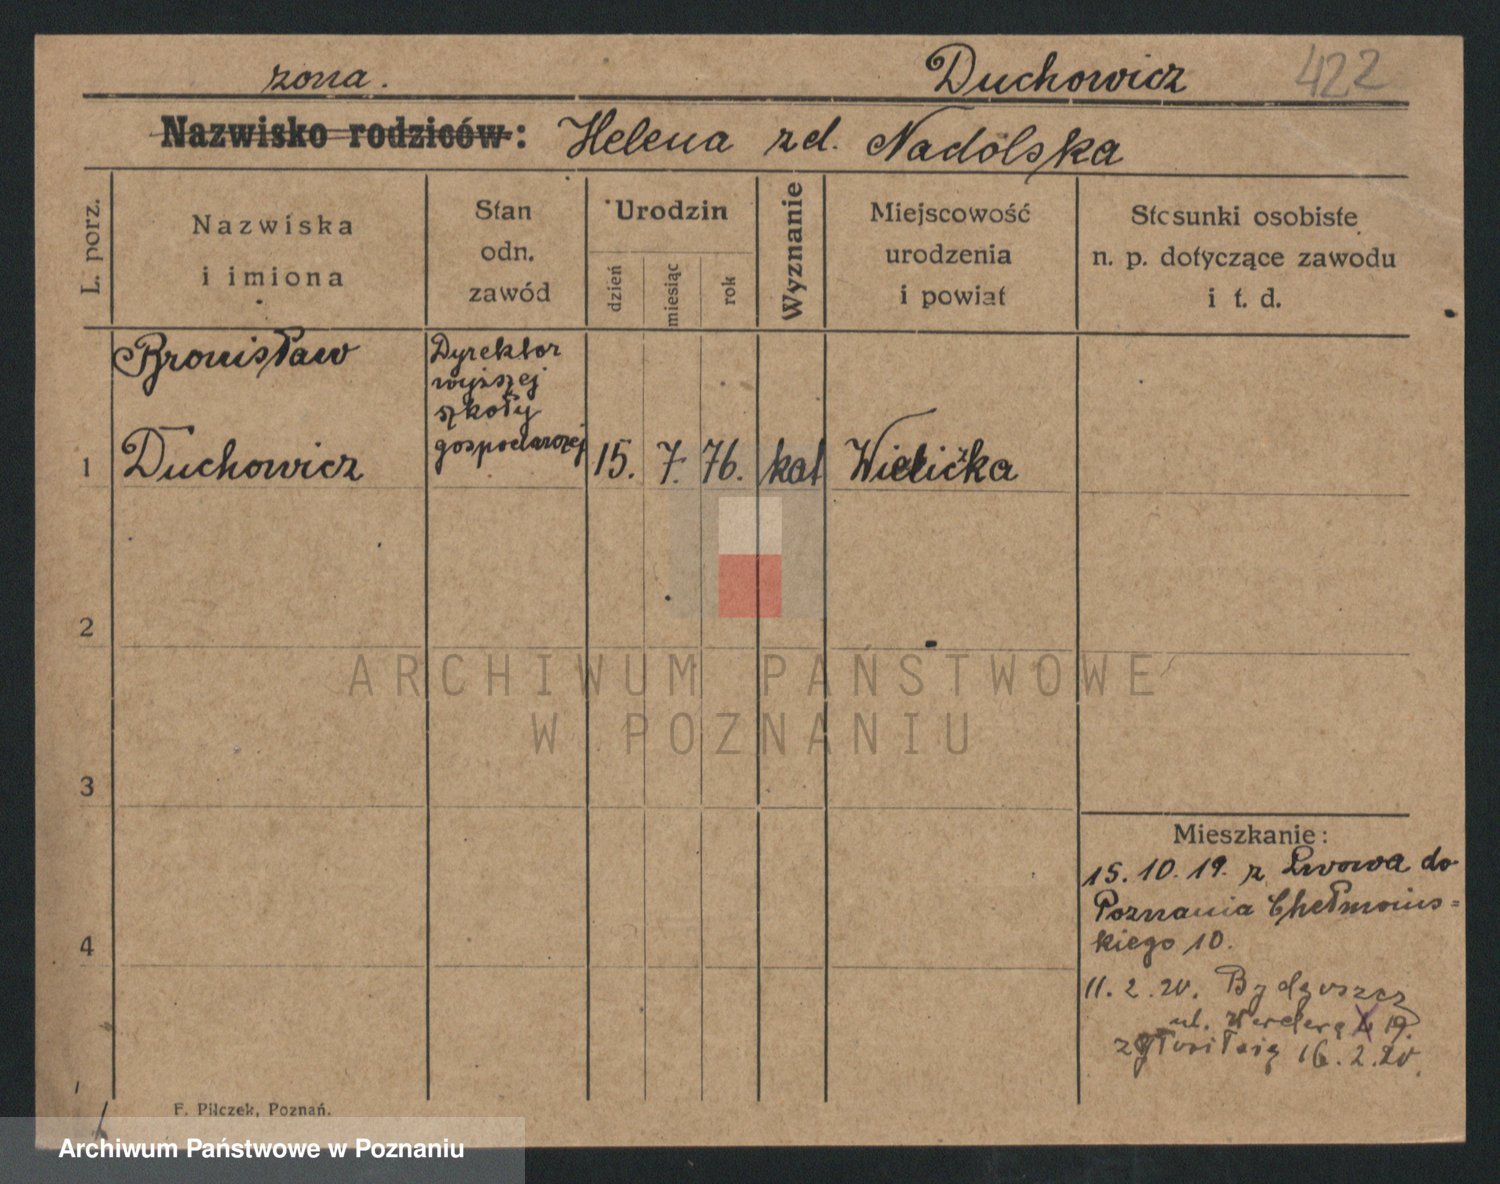 żona.
Duchowicz 422
Nazwisko rodziców: Helena zd. Nadolska
L. porz.
Nazwiska
i imiona
Stan
odn.
zawód
Urodzin
dzień
miesiąc
rok
Wyznanie
Miejscowość
urodzenia
i powiat
Stosunki osobiste
n. p. dotyczące zawodu
i t. d.
Bronisław
Dyrektor
wyższej
szkoły
gospodarczej
1 Duchowicz 15. 7. 76. kat Wieliczka
2
3
4
ARCHIWUM PAŃSTWOWE
W POZNANIU
Mieszkanie:
15. 10. 19. z Lwowa do
Poznania Chełmońs=
kiego 10.
11. 2. 20. Bydgoszcz
ul. 19.
zgłosił się 16. 2. 20.
F. Pilczek, Poznań.
Archiwum Państwowe w Poznaniu